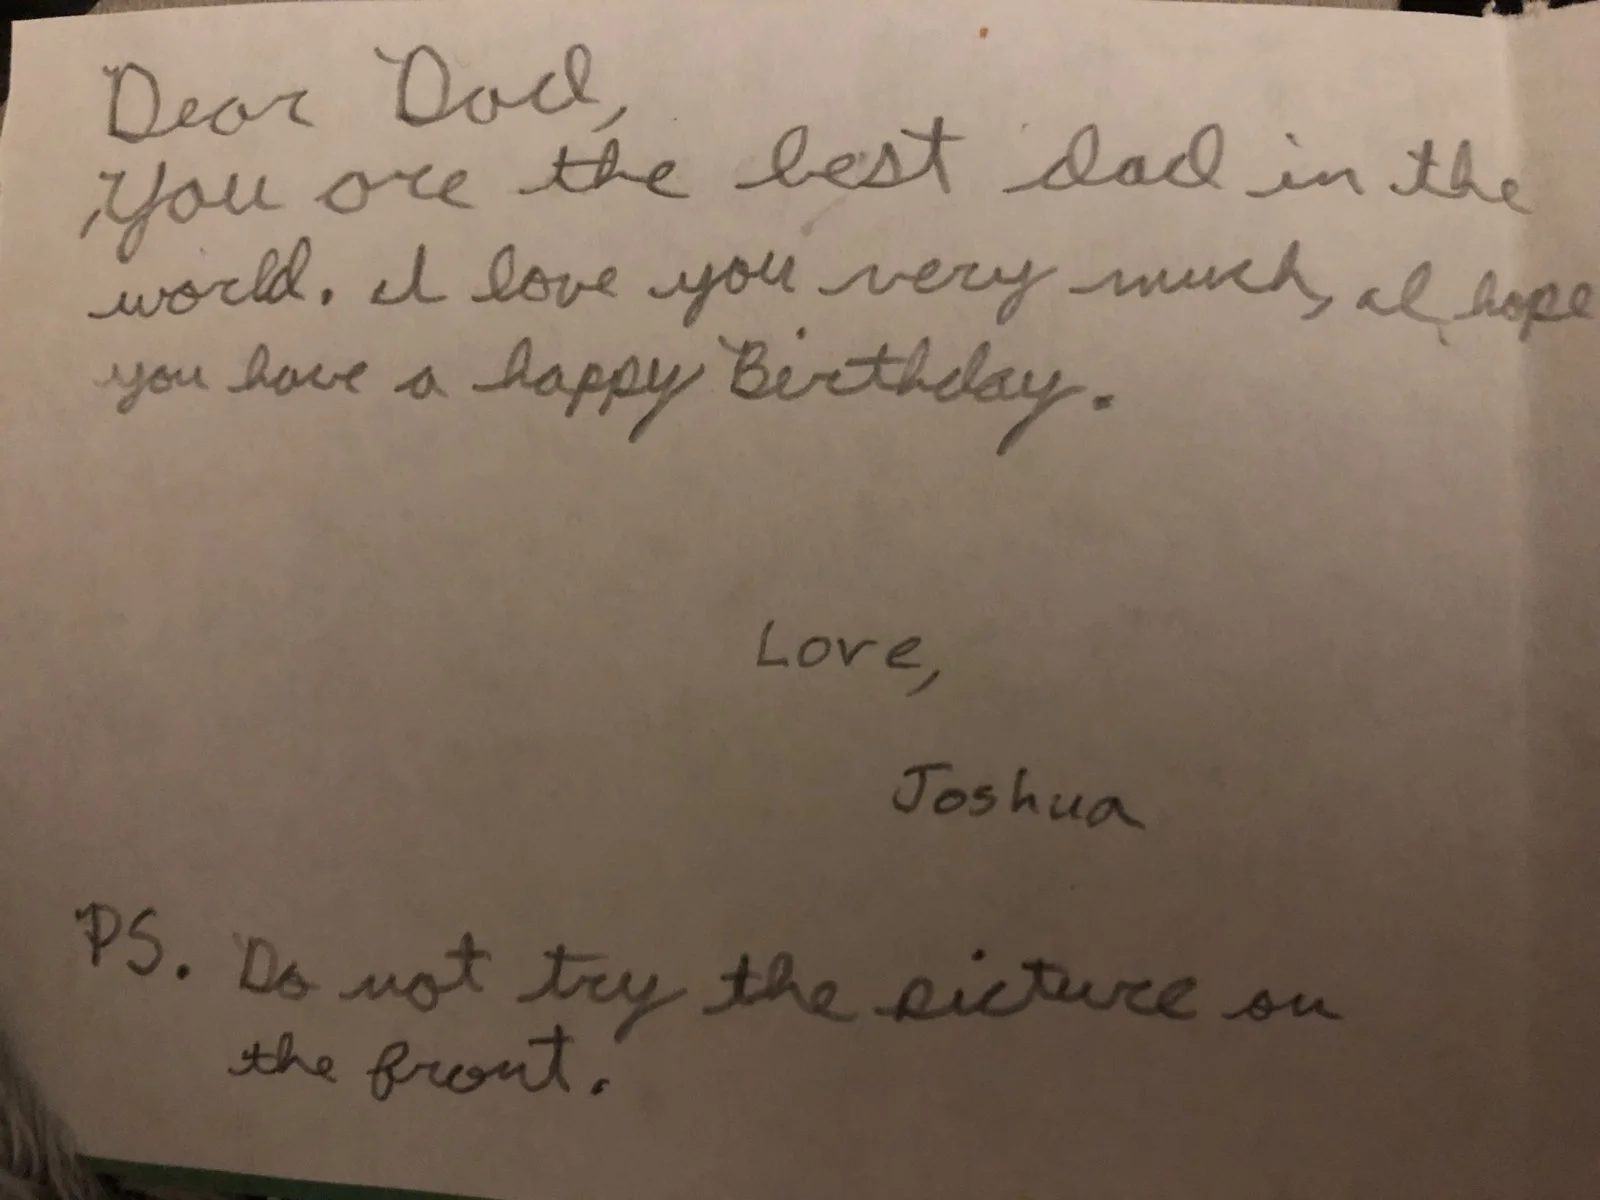 Dear Dad,
You are the best dad in the
world. I love you very much, I hope
you have a happy Birthday.
Love,
Joshua
PS. Do not try the picture on
the front.